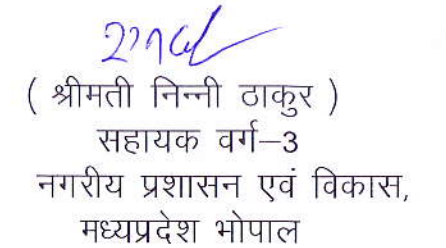 ( श्रीमती निन्नी ठाकुर )
सहायक वर्ग–3
नगरीय प्रशासन एवं विकास,
मध्यप्रदेश भोपाल